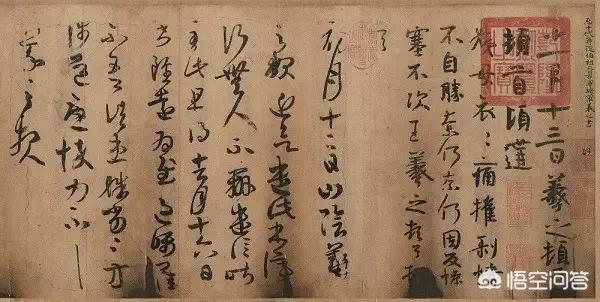 十一月十三日羲之頓
首頓首頃遘
姨母哀哀痛摧剝情
不自勝奈何奈何因反慘
塞不次王羲之頓首頓
首
初月十二日山陰羲
之報近欲遣此書停
行無人不辦遣信昨
至此且得去月十六日
書雖遠為慰過囑卿
佳不吾諸患殊劣殊劣方
涉道憂悴力不具
羲之報
悟空问答